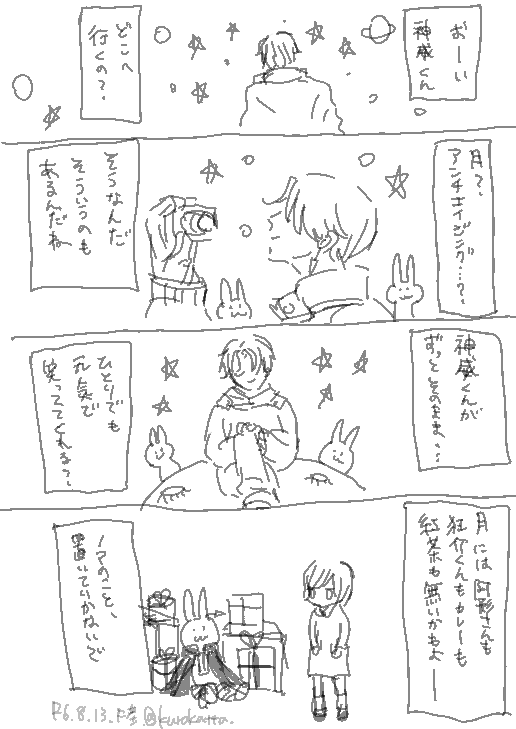 おーい
神威くん
どこへ
行くの？
月？
アンチエイジング…？
そうなんだ
そういうのも
あるんだね
神威くんが
ずっとそのまま…
ひとりでも
元気で
笑っててくれる？
月には阿形さんも
狂介くんもカレーも
紅茶も無いかもよー
ノアのこと、
置いていかないで
R6.8.13. @kurokatta.